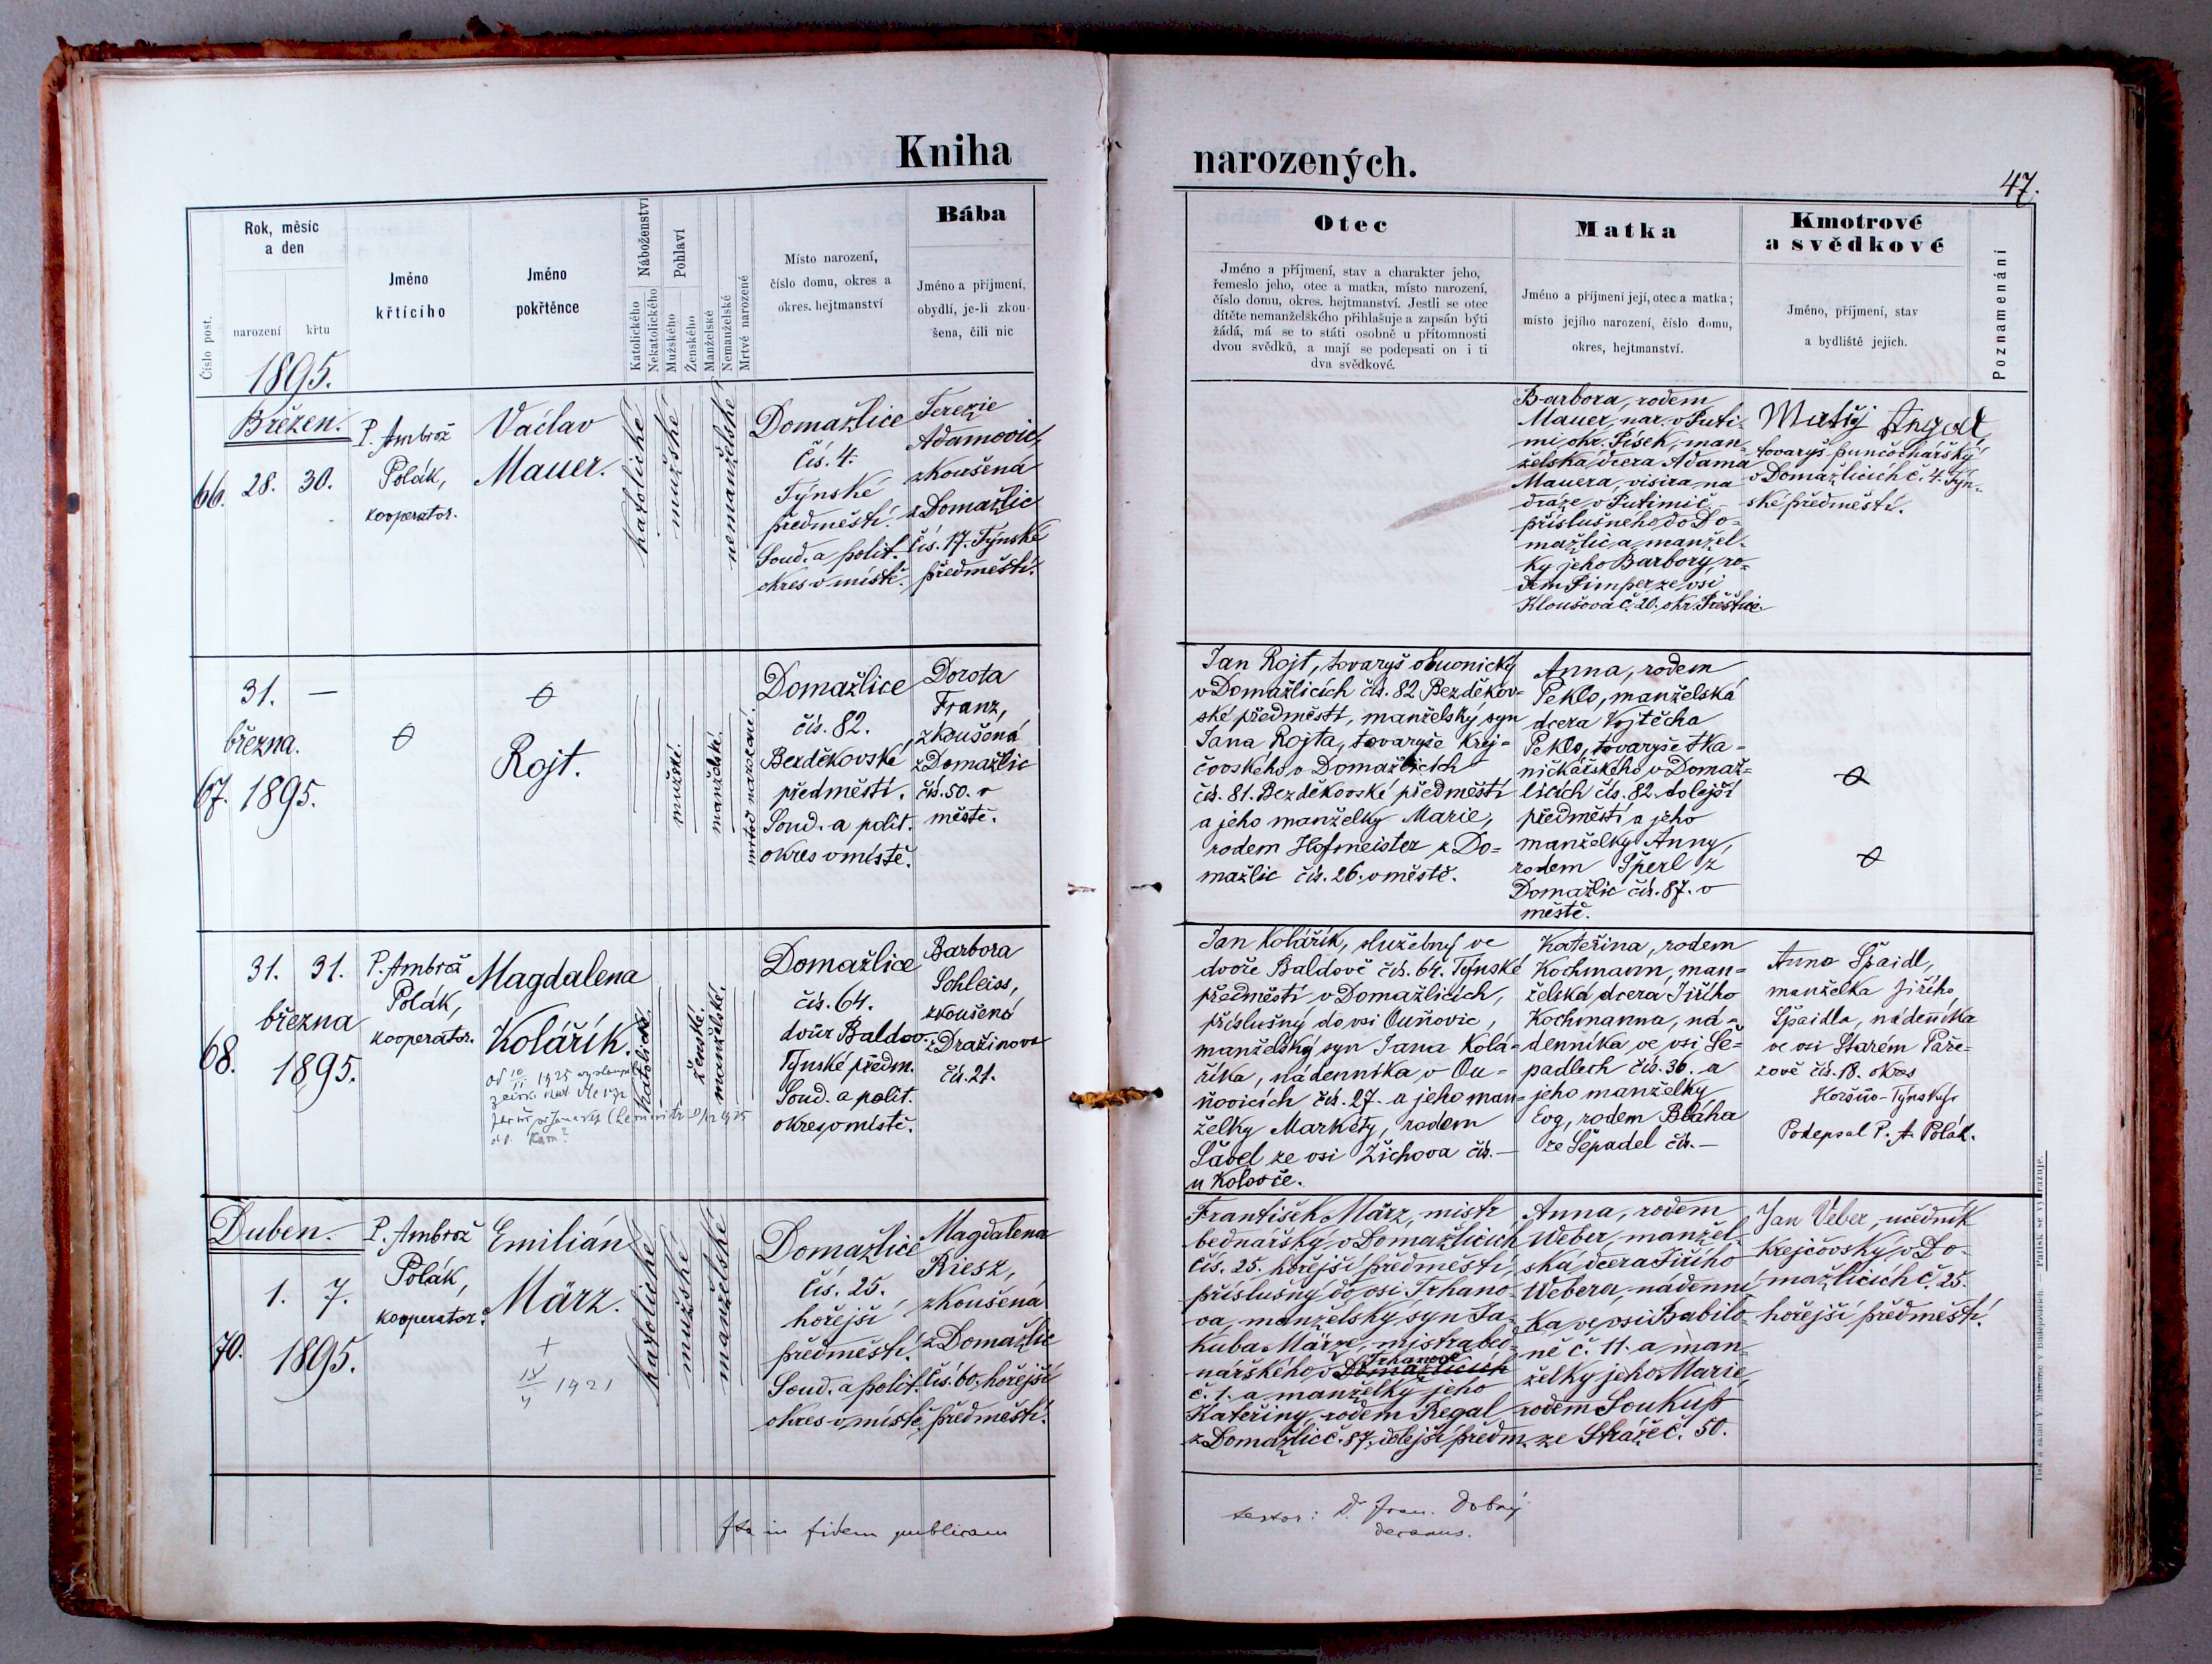 Kniha
narozených.
47.
Rok, měsíc
a den
Číslo post.
narození
křtu
1895.
Jméno
křtícího
Jméno
pokřtěnce
Náboženství
Katolického
Nekatolického
Pohlaví
Mužského
Ženského
Manželské
Nemanželské
Mrtvé narozené
Místo narození,
číslo domu, okres a
okres. hejtmanství
Bába
Jméno a příjmení,
obydlí, je-li zkou-
šena, čili nic
Otec
Jméno a příjmení, stav a charakter jeho,
řemeslo jeho, otec a matka, místo narození,
číslo domu, okres. hejtmanství. Jestli se otec
dítěte nemanželského přihlašuje a zapsán býti
žádá, má se to státi osobně u přítomnosti
dvou svědků, a mají se podepsati on i ti
dva svědkové.
Matka
Jméno a příjmení její, otec a matka;
místo jejího narození, číslo domu,
okres, hejtmanství.
Kmotrové
a svědkové
Jméno, příjmení, stav
a bydliště jejich.
Poznamenání
Březen.
66. 28. 30.
P. Ambrož
Polák,
kooperator.
Václav
Mauer.
katolické
mužské
nemanželské
Domažlice
čís. 4.
Týnské
předměstí.
Soud. a polit.
okres v místě.
Terezie
Adamovic,
zkoušená
z Domažlic
čís. 17. Týnské
předměstí.
Barbora, rodem
Mauer, nar. v Puti-
mi okr. Písek, man-
želská dcera Adama
Mauera, visira na
dráze v Putimi č.
příslušného do Do-
mažlic a manžel-
ky jeho Barbory, ro-
dem Pimper ze vsi
Kloušova č. 20. okr. Přeštice.
Matěj
tovaryš punčochářský
v Domažlicích č. 4. Týn-
ské předměstí.
31. —
března.
67. 1895.
Rojt.
mužské.
manželské.
mrtvě narozené.
Domažlice
čís. 82.
Bezděkovské
předměstí.
Soud. a polit.
okres v místě.
Dorota
Franz,
zkoušená
z Domažlic
čís. 50. v
městě.
Jan Rojt, tovaryš obuvnický
v Domažlicích čís. 82 Bezděkov-
ské předměstí, manželský syn
Jana Rojta, tovaryše krej-
čovského v Domažlicích
čís. 81. Bezděkovské předměstí
a jeho manželky Marie,
rodem Hofmeister z Do-
mažlic čís. 26. v městě.
Anna, rodem
Peklo, manželská
dcera Vojtěcha
Pekla, tovaryše tka-
ničkářského v Domaž-
licích čís. 82. dolejší
předměstí a jeho
manželky Anny,
rodem Šperl z
Domažlic čís. 87. v
městě.
31. 31.
března
68. 1895.
P. Ambrož
Polák,
kooperator.
Magdalena
Kolářík.
katolické.
ženské.
manželské.
Domažlice
čís. 64.
dvůr Baldov.
Týnské předm.
Soud. a polit.
okres v místě.
Barbora
Schleiss,
zkoušená
z Dražinova
čís. 21.
Jan Kolářík, služebný ve
dvoře Baldově čís. 64. Týnské
předměstí v Domažlicích,
příslušný do vsi Ouňovic,
manželský syn Jana Kolá-
říka, nádenníka v Ou-
ňovicích čís. 27. a jeho man-
želky Markéty, rodem
Šavel ze vsi Žichova čís. —
u Koloveče.
Kateřina, rodem
Kochmann, man-
želská dcera Jiřího
Kochmanna, ná-
denníka ve vsi Še-
padlech čís. 36. a
jeho manželky
Evy, rodem Bláha
ze Šepadel čís. —
Anna Špaidl,
manželka Jiřího
Špaidla, nádeníka
ve vsi Starém Paře-
zově čís. 18. okres
Horšův-Týnský.
Podepsal P. A. Polák.
Duben.
1. 7.
70. 1895.
P. Ambrož
Polák,
kooperator.
Emilián
März.
+
1921
katolické
mužské
manželské
Domažlice
čís. 25.
hořejší
předměstí.
Soud. a polit.
okres v místě.
Magdalena
Riesz,
zkoušená
z Domažlic
čís. 60, hořejší
předměstí.
František März, mistr
bednářský v Domažlicích
čís. 25. hořejší předměstí,
příslušný do vsi Trhano-
va, manželský syn Ja-
kuba Märze, mistra bed-
nářského v Domažlicích Trhanově
č. 1. a manželky jeho
Kateřiny, rodem Regal
z Domažlic č. 87, dolejší předm.
Anna, rodem
Weber, manžel-
ská dcera Jiřího
Webera, nádenní-
ka ve vsi Babilo-
ně č. 11. a man-
želky jeho Marie,
rodem Soukup
ze Stráže č. 50.
Jan Veber, učedník
krejčovský v Do-
mažlicích č. 25.
hořejší předměstí.
Ita in fidem publicam
testor: Dr. Fran. Dobrý
decanus.